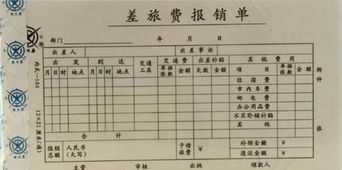 差旅费报销单
部门 年 月 日
出差人 出差事由
出发 到达 交通工具 交通费 出差补贴 其他费用
月 日 时 地点 月 日 时 地点 单据张数 金额 天数 金额 项目 单据张数 金额
住宿费
市内车费
邮电费
办公用品费
不买卧铺补贴
其他
合计
报销总额 人民币(大写) 预借旅费 ¥ 补领金额 ¥
退还金额 ¥
主管 审核 出纳 领款人
附件
张